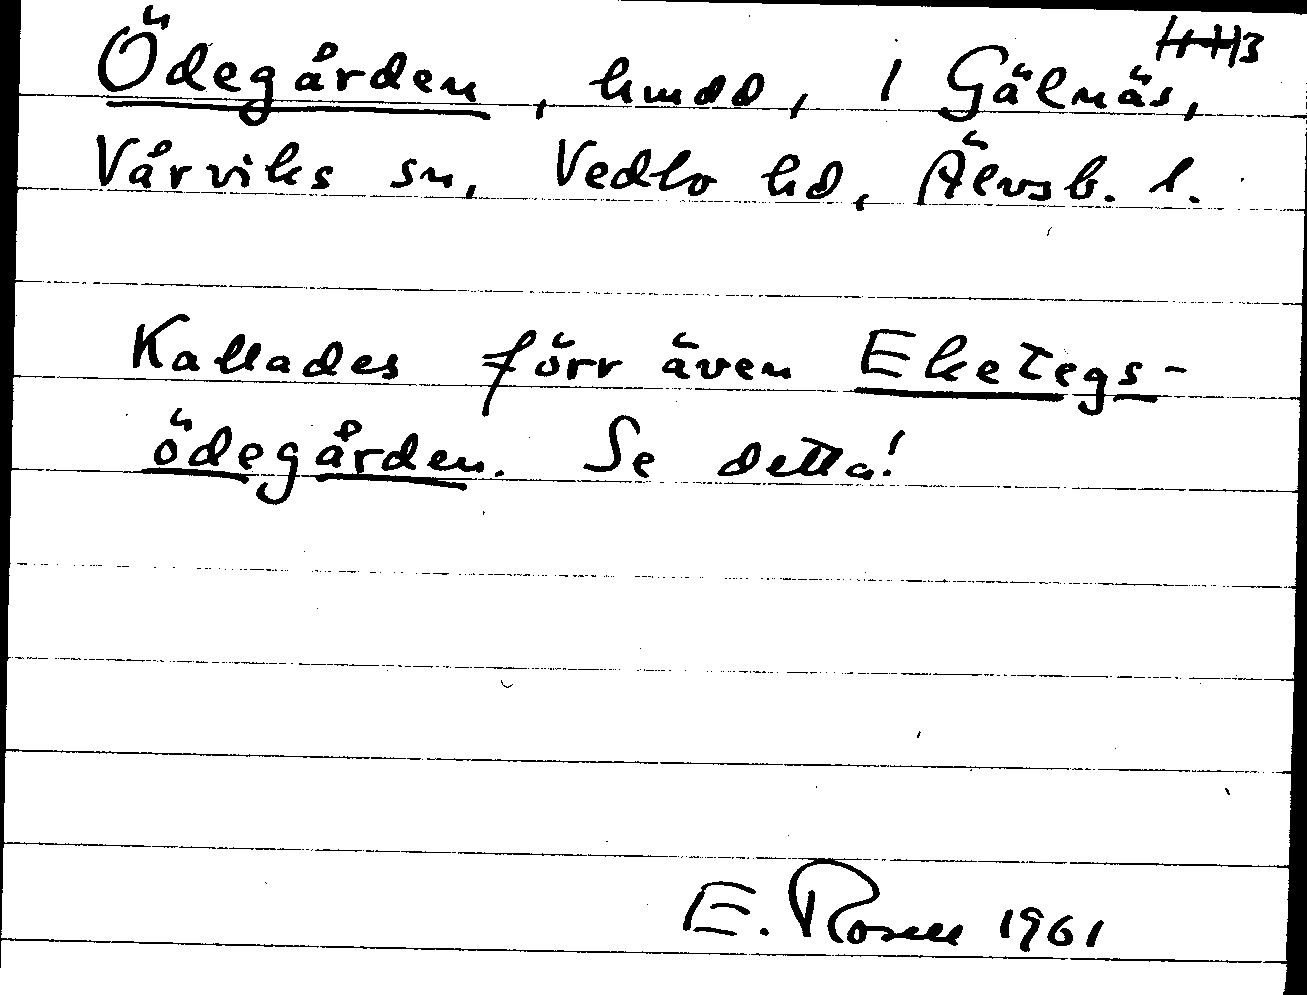 Ödegården, hmdd, 1 Gälnäs,
Vårviks sn, Vedbo hd, Älvsb. l.
Kallades förr även Eketegs-
ödegården. Se detta!
E. Rosell 1961